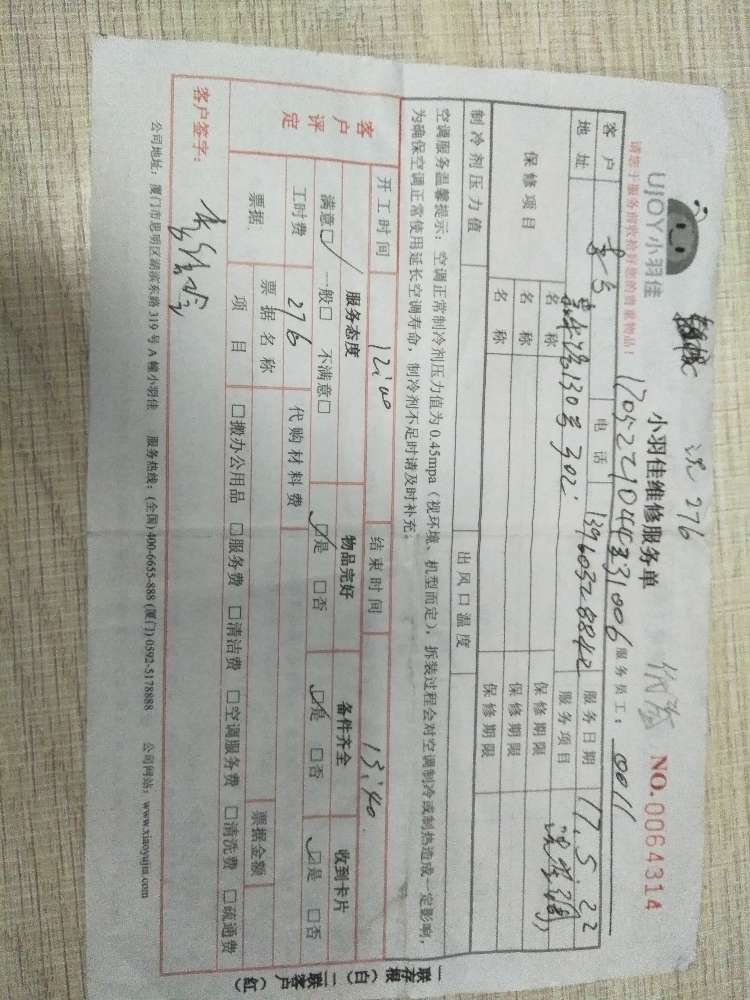 UJOY小羽佳
小羽佳维修服务单
NO.0064314
洗276
请您于服务前收拾好您的贵重物品！
17052210443331006
服务员工： 0011
客户
电话 13960328842
服务日期 17.5.22
地址 130号302
服务项目
保修项目 名称 保修期限
名称 保修期限
名称 保修期限
制冷剂压力值 出风口温度
空调服务温馨提示：空调正常制冷剂压力值为0.45mpa（视环境、机型而定），拆装过程会对空调制冷或制热造成一定影响，
为确保空调正常使用延长空调寿命，制冷剂不足时请及时补充。
开工时间 12:00 结束时间 15:40
客户评定 服务态度 物品完好 备件齐全 收到卡片
满意□ 一般□ 不满意□ □是 □否 □是 □否 □是 □否
工时费 276 代购材料费
票据 票据名称 票据金额
项目 □搬办公用品 □服务费 □清洁费 □空调服务费 □清洗费 □疏通费
客户签字：
公司地址：厦门市思明区湖滨东路319号A幢小羽佳 服务热线：(全国) 400-6655-888 (厦门) 0592-5178888 公司网站：www.xiaoyujia.com
一联存根（白）二联客户（红）